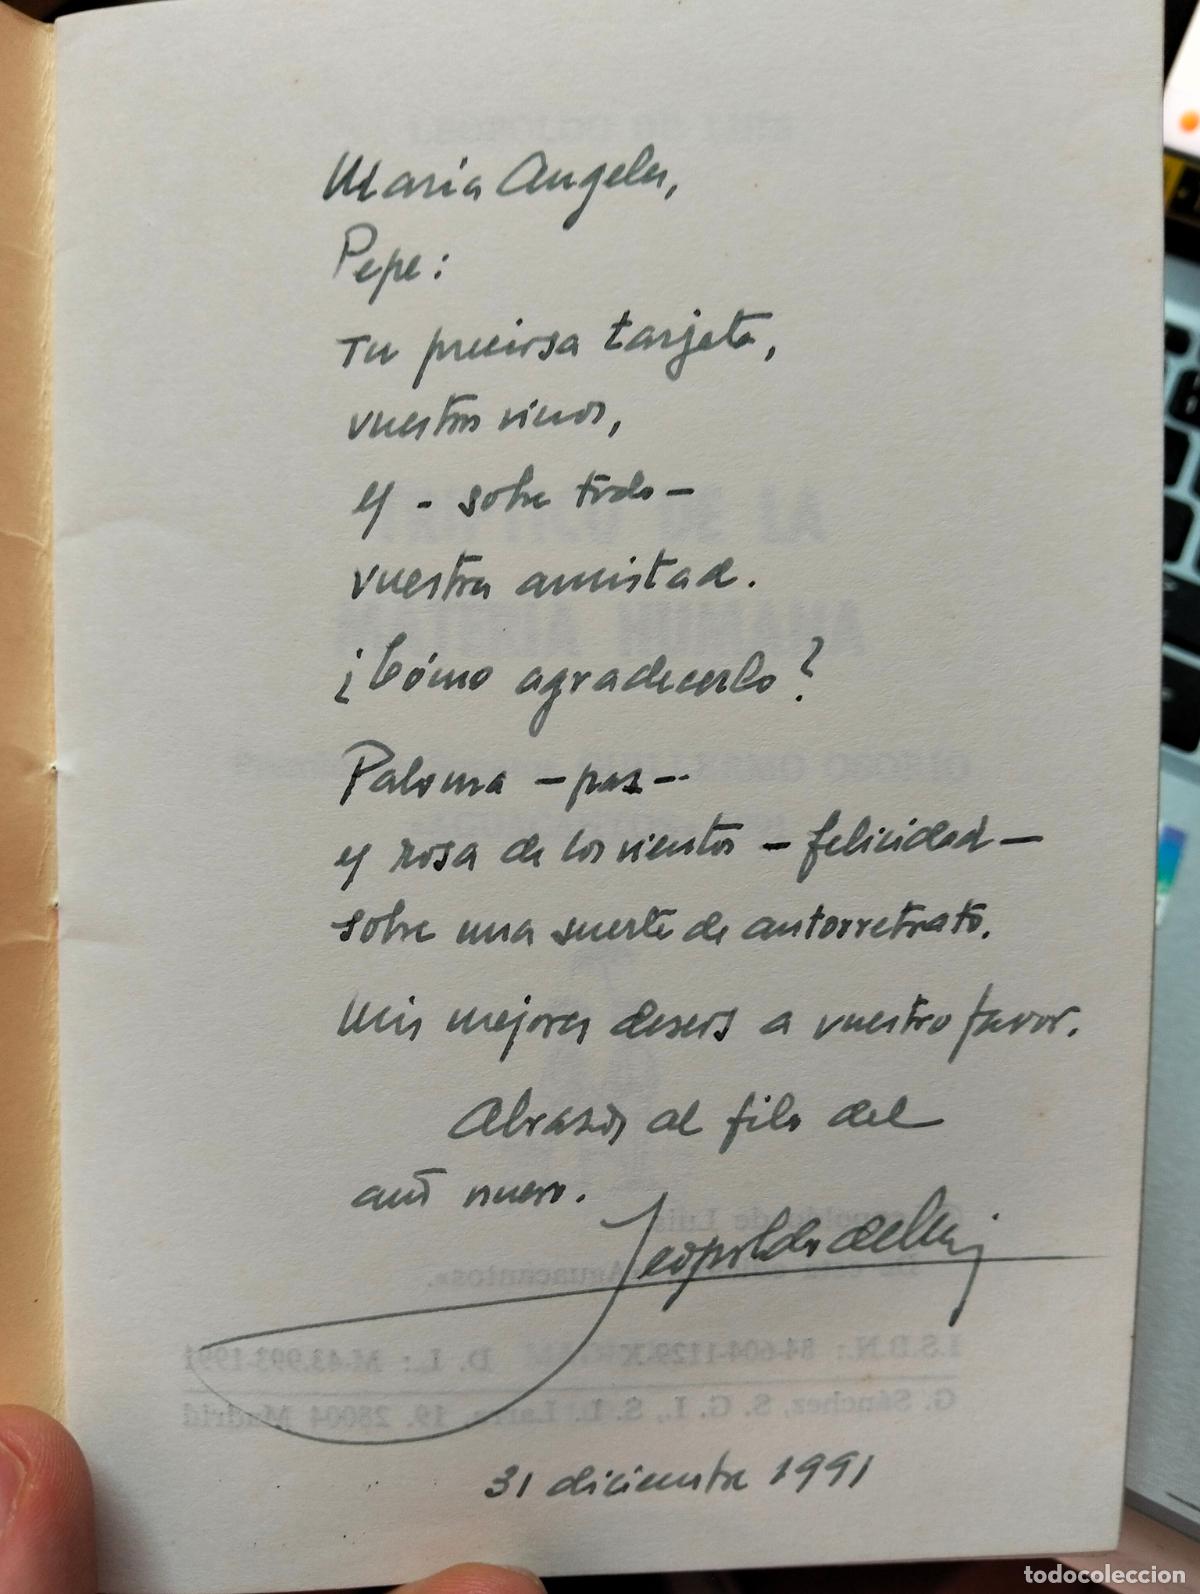 Maria Angeles,
Pepe:
Tu preciosa tarjeta,
vuestros vinos,
y - sobre todo -
vuestra amistad.
¿Cómo agradecerlo?
Paloma - paz -
y rosa de los vientos - felicidad -
sobre una suerte de autorretrato.
Mis mejores deseos a vuestro favor.
Abrazos al filo del
año nuevo.
Leopoldo de Luis
31 diciembre 1991
todocoleccion